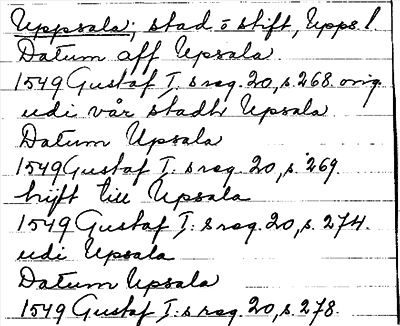 Uppsala; stad o stift, Upps. l.
Datum aff Upsala
1549 Gustaf I:s reg. 20, s. 268. orig.
udi vår stadh Upsala
Datum Upsala
1549 Gustaf I:s reg. 20, s. 269.
hijtt till Upsala
1549 Gustaf I:s reg. 20, s. 274.
udi Upsala
Datum Upsala
1549 Gustaf I:s reg. 20, s. 278.